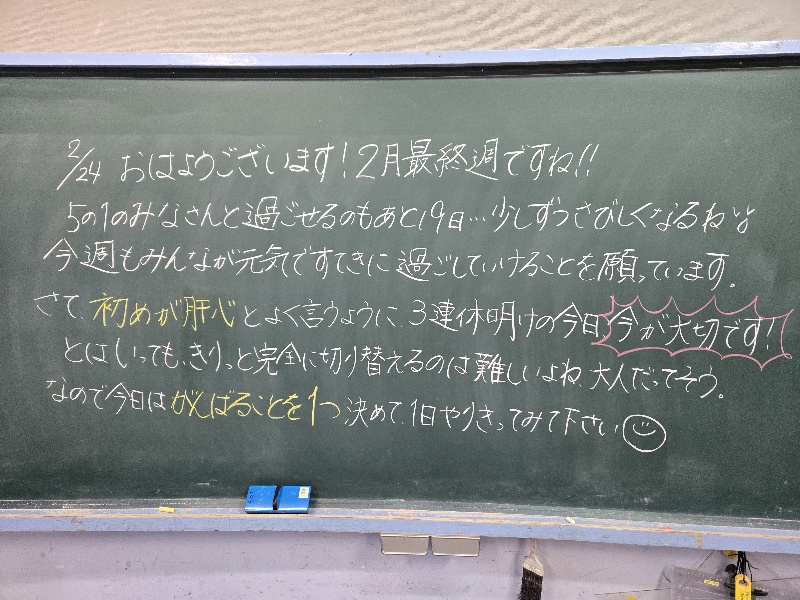 2/24 おはようございます!2月最終週ですね!!
5の1のみなさんと過ごせるのもあと19日…少しずつさびしくなるね…
今週もみんなが元気ですてきに過ごしていけることを願っています。
さて、初めが肝心とよく言うように、3連休明けの今日、今が大切です!
とはいっても、きりっと完全に切り替えるのは難しいよね。大人だってそう。
なので今日はがんばることを1つ決めて、1日やりきってみて下さい